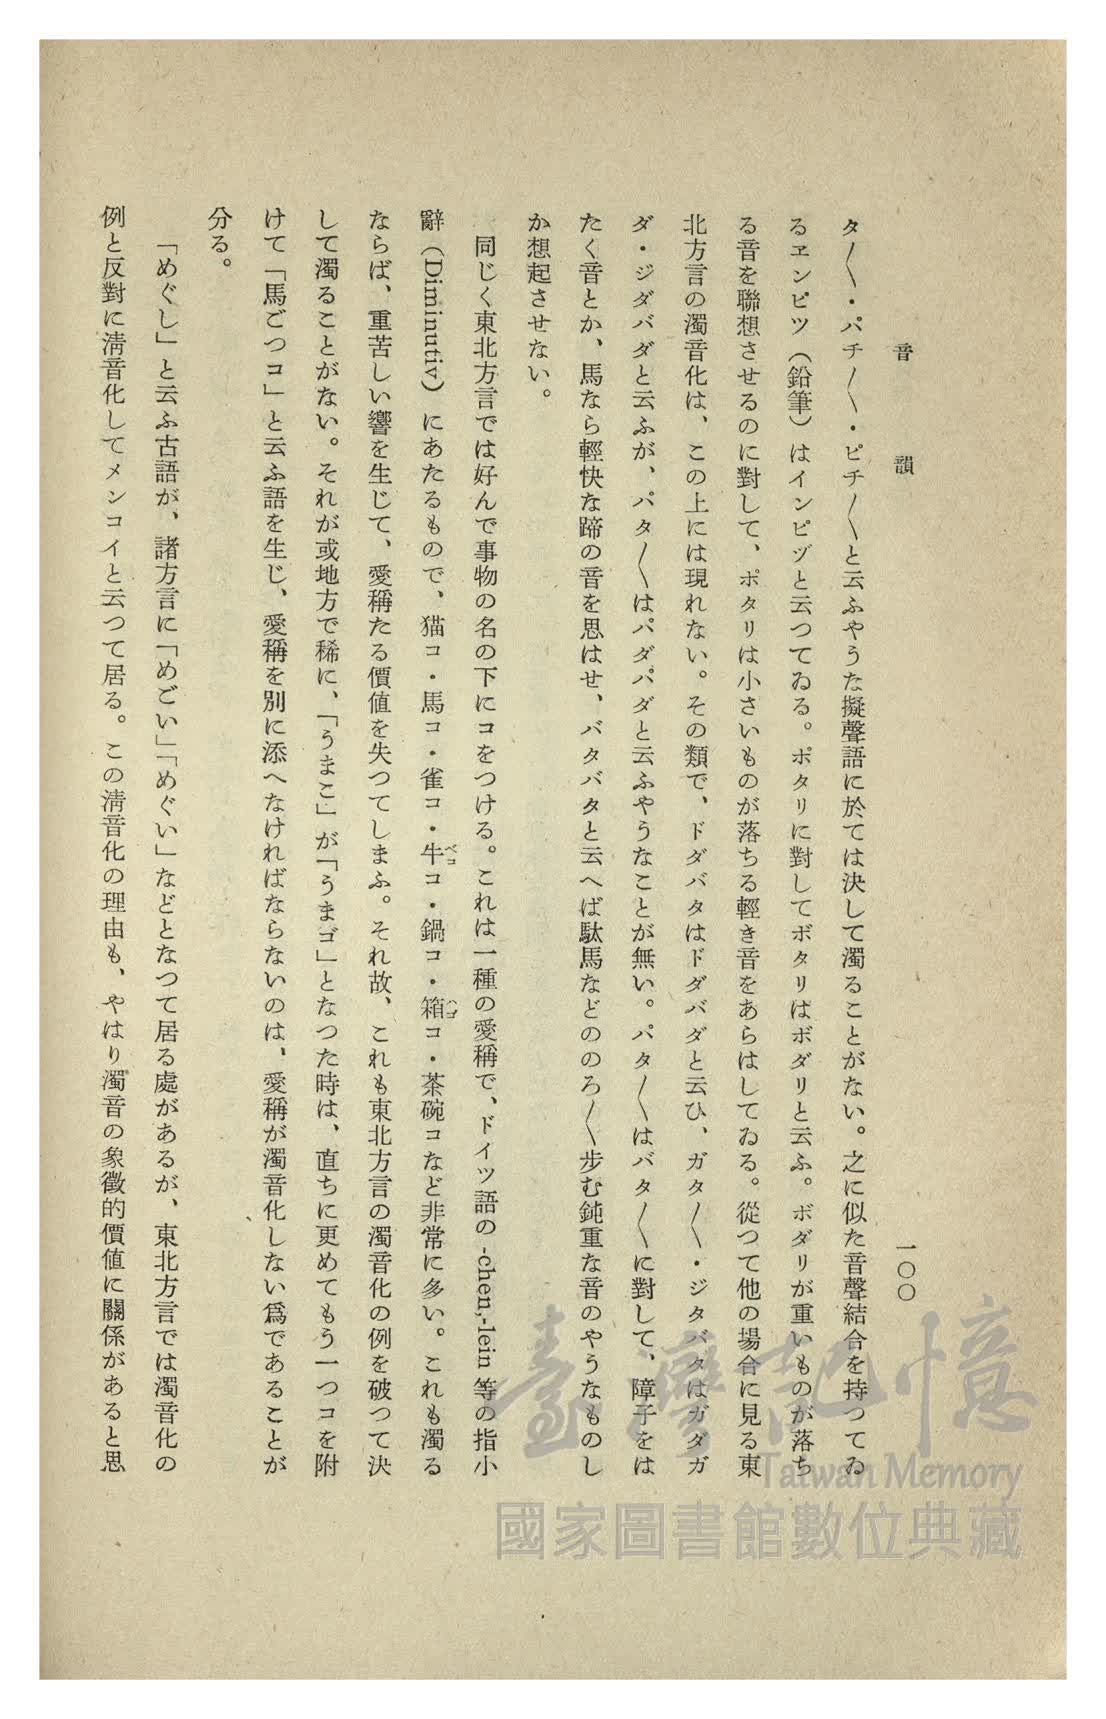 音韻
一〇〇
タ〱・パチ〱・ピチ〱と云ふやうな擬聲語に於ては決して濁ることがない。之に似た音聲結合を持つてゐ
るヱンピツ（鉛筆）はインピヅと云つてゐる。ポタリに對してボタリはボダリと云ふ。ボダリが重いものが落ち
る音を聯想させるのに對して、ポタリは小さいものが落ちる輕き音をあらはしてゐる。從つて他の場合に見る東
北方言の濁音化は、この上には現れない。その類で、ドダバタはドダバダと云ひ、ガタ〱・ジタバタはガダガ
ダ・ジダバダと云ふが、パタ〱はパダパダと云ふやうなことが無い。パタ〱はバタ〱に對して、障子をは
たく音とか、馬なら輕快な蹄の音を思はせ、バタバタと云へば駄馬などののろ〱歩む鈍重な音のやうなものし
か想起させない。
同じく東北方言では好んで事物の名の下にコをつける。これは一種の愛稱で、ドイツ語の -chen,-lein 等の指小
辭（Diminutiv）にあたるもので、猫コ・馬コ・雀コ・牛ベココ・鍋コ・箱ハココ・茶碗コなど非常に多い。これも濁る
ならば、重苦しい響を生じて、愛稱たる價値を失つてしまふ。それ故、これも東北方言の濁音化の例を破つて決
して濁ることがない。それが或地方で稀に、「うまこ」が「うまゴ」となつた時は、直ちに更めてもう一つコを附
けて「馬ごつコ」と云ふ語を生じ、愛稱を別に添へなければならないのは、愛稱が濁音化しない爲であることが
分る。
「めぐし」と云ふ古語が、諸方言に「めごい」「めぐい」などとなつて居る處があるが、東北方言では濁音化の
例と反對に淸音化してメンコイと云つて居る。この淸音化の理由も、やはり濁音の象徵的價値に關係があると思
臺灣記憶
Taiwan Memory
國家圖書館數位典藏